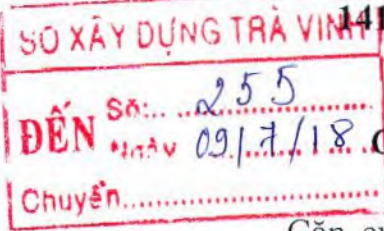 SỞ XÂY DỰNG TRÀ VINH
141
ĐẾN Số:... 255
Ngày 09/7/18
Chuyển
Căn